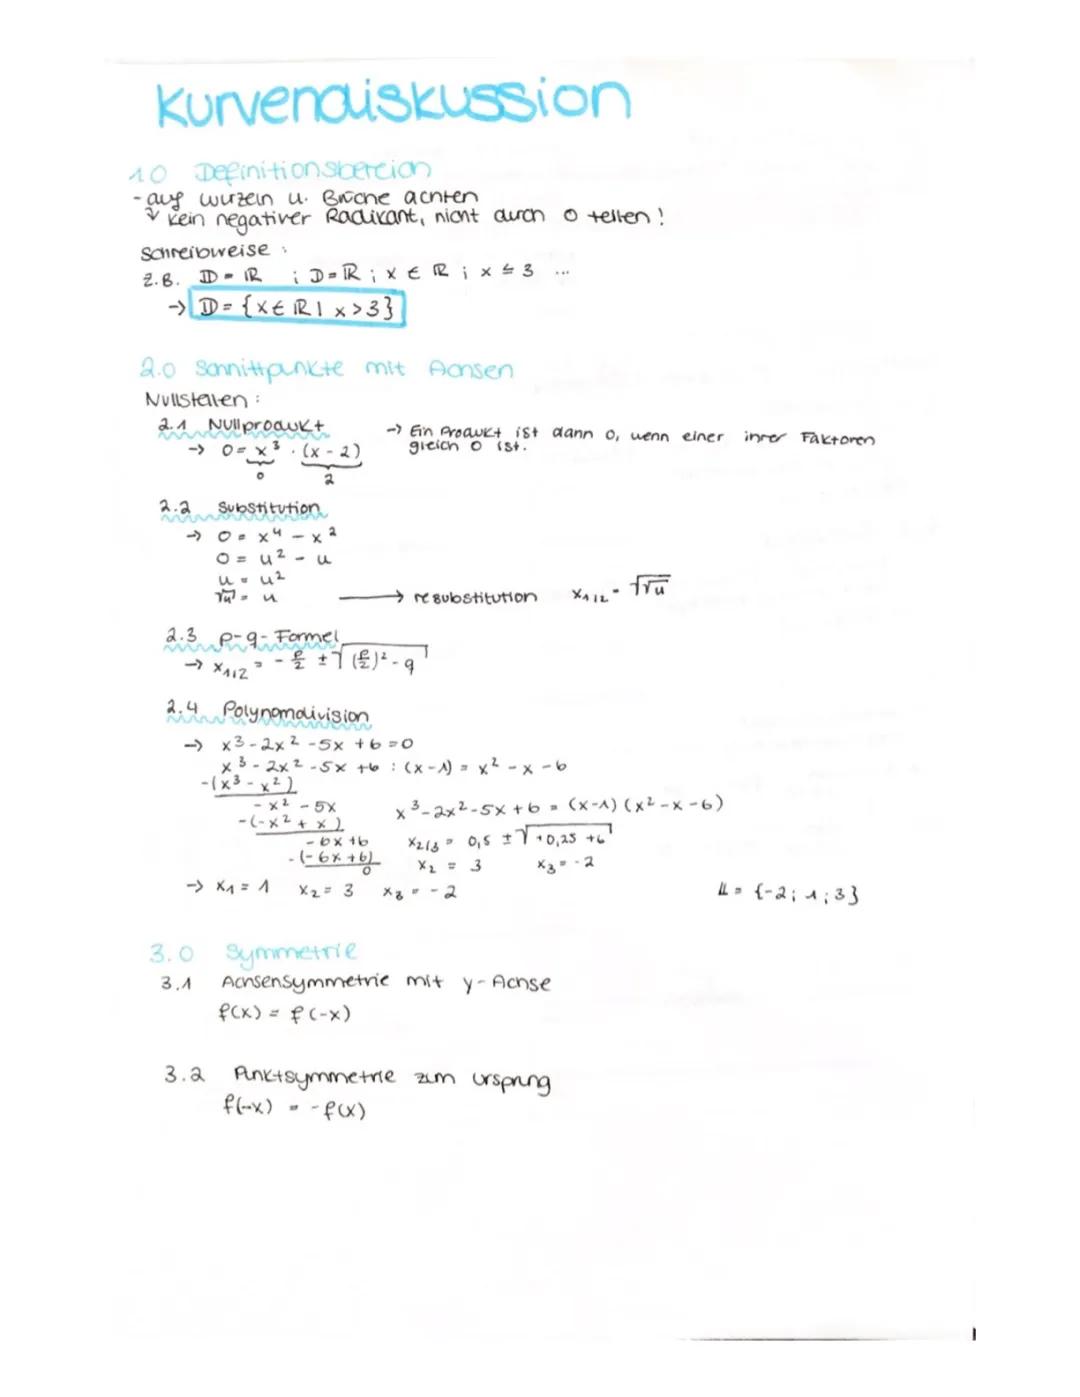 Kurvendiskussion
1.0 Definitionsbereich
- auf Wurzeln u. Brüche achten
↓ kein negativer Radikant, nicht durch 0 teilen!
Schreibweise:
z.B. 𝔻 = ℝ ; D = ℝ ; x ∈ ℝ ; x ≤ 3 ...
→ 𝔻 = {x ∈ ℝ | x > 3}
2.0 Schnittpunkte mit Achsen
Nullstellen:
2.1 Nullprodukt → Ein Produkt ist dann 0, wenn einer ihrer Faktoren
→ 0 = x³ · (x - 2) gleich 0 ist.
0 2
2.2 Substitution
→ 0 = x⁴ - x²
0 = u² - u
u = u²
√u = u → resubstitution x₁/₂ = √√u
2.3 p-q-Formel
→ x₁/₂ = - p/2 ± √(p/2)² - q
2.4 Polynomdivision
→ x³ - 2x² - 5x + 6 = 0
x³ - 2x² - 5x + 6 : (x - 1) = x² - x - 6
-(x³ - x²)
- x² - 5x x³ - 2x² - 5x + 6 = (x-1) (x² - x - 6)
-(-x² + x)
- 6x + 6 x₂/₃ = 0,5 ± √+0,25 + 6
-(-6x + 6) x₂ = 3 x₃ = -2
0
→ x₁ = 1 x₂ = 3 x₃ = -2 𝕃 = {-2; 1; 3}
3.0 Symmetrie
3.1 Achsensymmetrie mit y-Achse
f(x) = f(-x)
3.2 Punktsymmetrie zum Ursprung
f(-x) = -f(x)